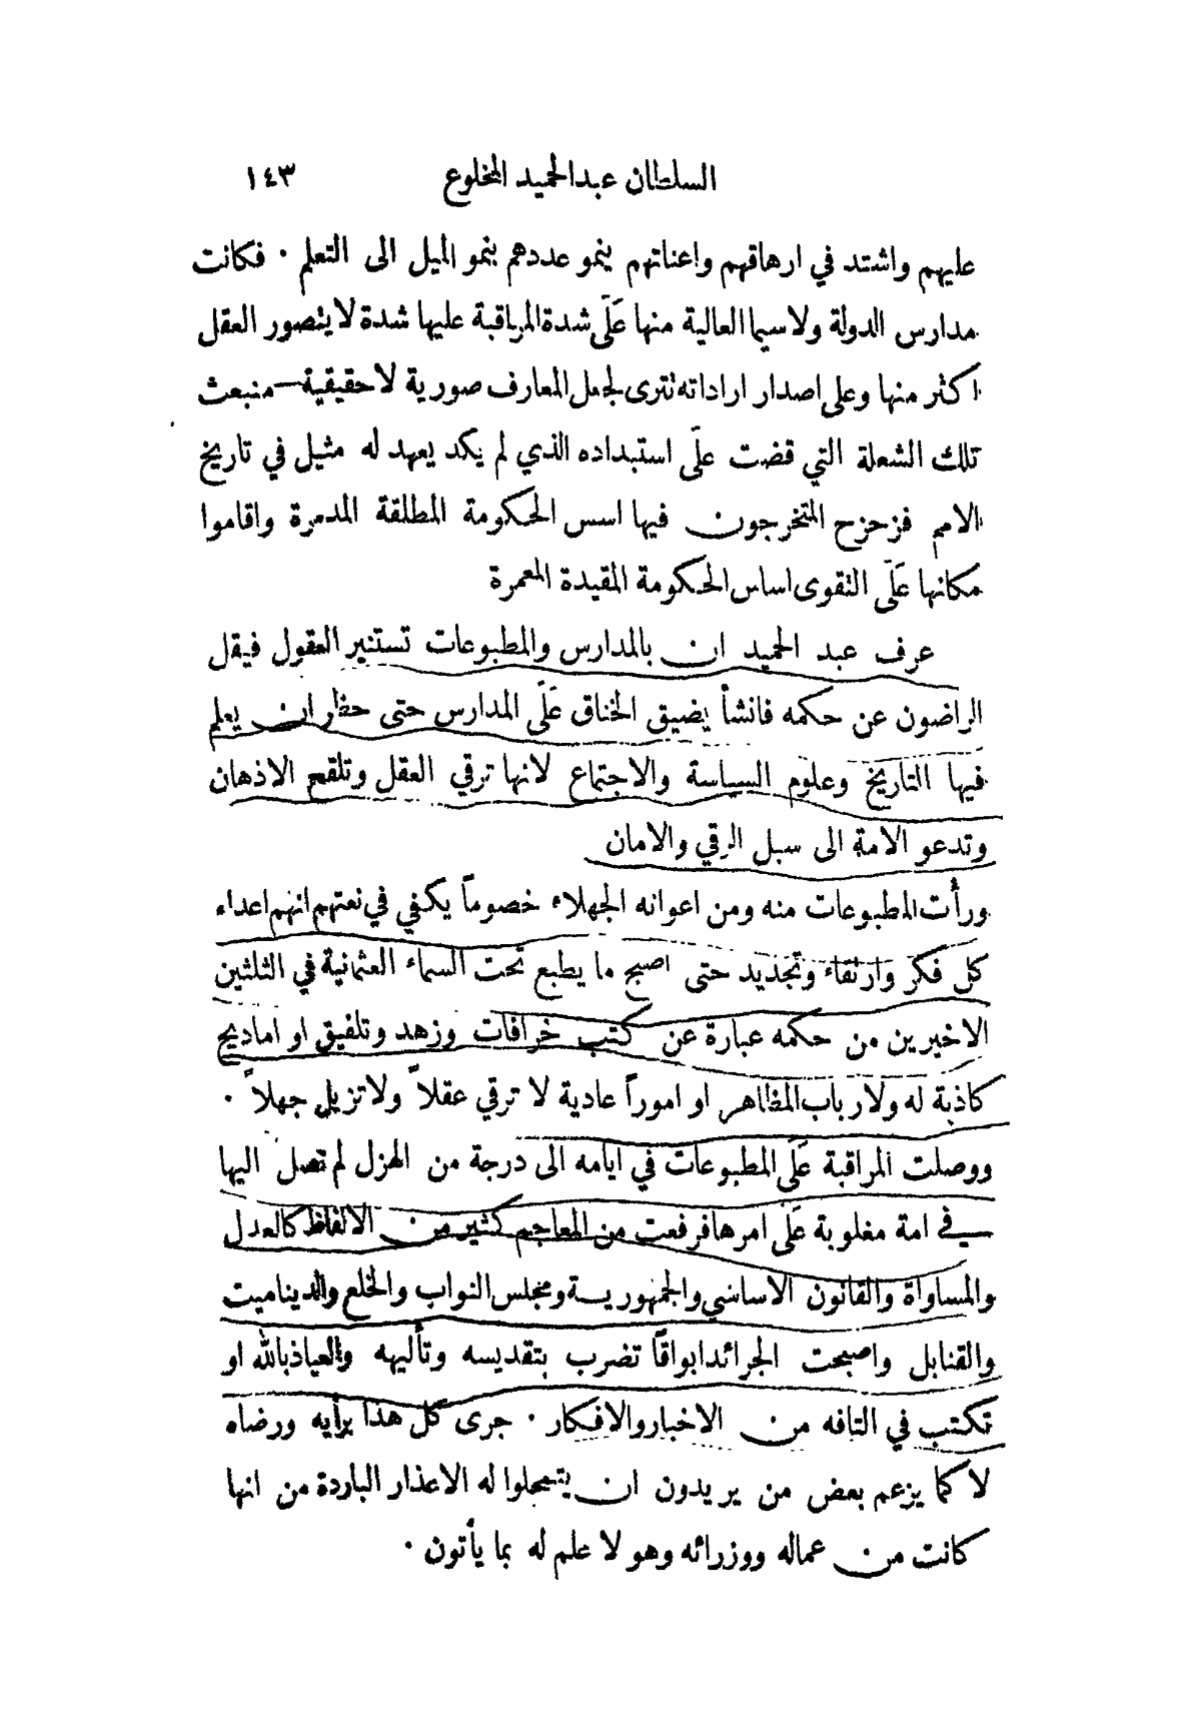 السلطان عبدالحميد المخلوع ١٤٣
عليهم واشتد في ارهاقهم واعناتهم ينمو عددهم بنمو الميل الى التعلم . فكانت
مدارس الدولة ولاسيما العالية منها عَلَى شدة المراقبة عليها شدة لا يتصور العقل
اكثر منها وعلى اصدار اراداته تترى لجعل المعارف صورية لا حقيقية — منبعث
تلك الشعلة التي قضت علَى استبداده الذي لم يكد يعهد له مثيل في تاريخ
الامم فزحزح المتخرجون فيها اسس الحكومة المطلقة المدمرة واقاموا
مكانها عَلَى التقوى اساس الحكومة المقيدة المعمرة
عرف عبد الحميد ان بالمدارس والمطبوعات تستنير العقول فيقل
الراضون عن حكمه فانشأ يضيق الخناق عَلَى المدارس حتى حظر ان يعلم
فيها التاريخ وعلوم السياسة والاجتماع لانها ترقي العقل وتلقح الاذهان
وتدعو الامة الى سبل الرقي والامان
ورأت المطبوعات منه ومن اعوانه الجهلاء خصوماً يكفي في نعتهم انهم اعداء
كل فكر وارتقاء وتجديد حتى اصبح ما يطبع تحت السماء العثمانية في الثلثين
الاخيرين من حكمه عبارة عن كتب خرافات وزهد وتلفيق او اماديح
كاذبة له ولارباب المظاهر او اموراً عادية لا ترقي عقلاً ولا تزيل جهلاً .
ووصلت المراقبة عَلَى المطبوعات في ايامه الى درجة من الهزل لم تصل اليها
في امة مغلوبة عَلَى امرها فرفعت من المعاجم كثير من الالفاظ كالعدل
والمساواة والقانون الاساسي والجمهورية ومجلس النواب والخلع والديناميت
والقنابل واصبحت الجرائد ابواقاً تضرب بتقديسه وتأليهه والعياذ بالله او
تكتب في التافه من الاخبار والافكار . جرى كل هذا برأيه ورضاه
لا كما يزعم بعض من يريدون ان يتمحلوا له الاعذار الباردة من انها
كانت من عماله ووزرائه وهو لا علم له بما يأتون .